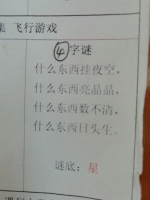 飞行游戏
④字谜
什么东西挂夜空，
什么东西亮晶晶，
什么东西数不清，
什么东西日头生。
谜底：星